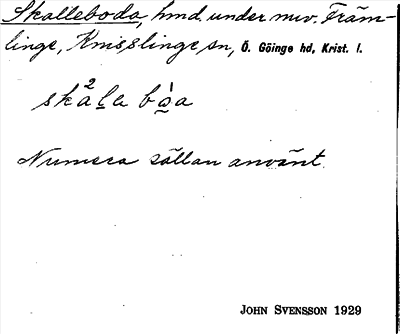 Skalleboda, hmd. under nuv. Främ-
linge, Knisslinge sn, Ö. Göinge hd, Krist. l.
skala bòa
Numera sällan använt.
JOHN SVENSSON 1929